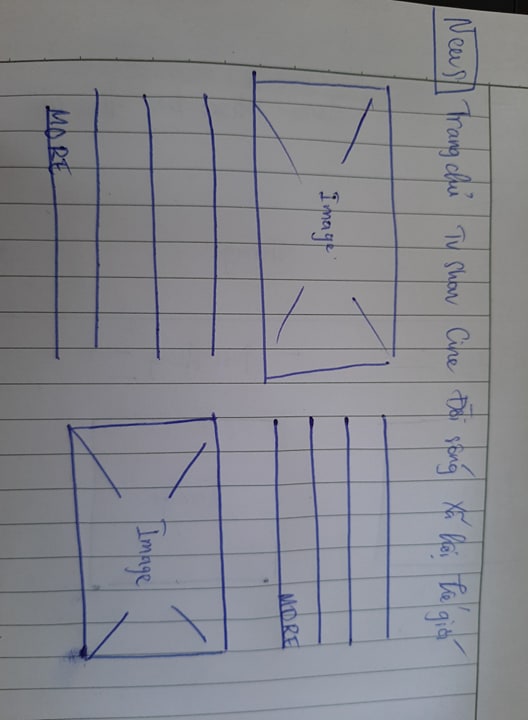 News Trang chủ TV Show Cine Đời sống Xã hội Thế giới
Image
MORE
Image
MORE